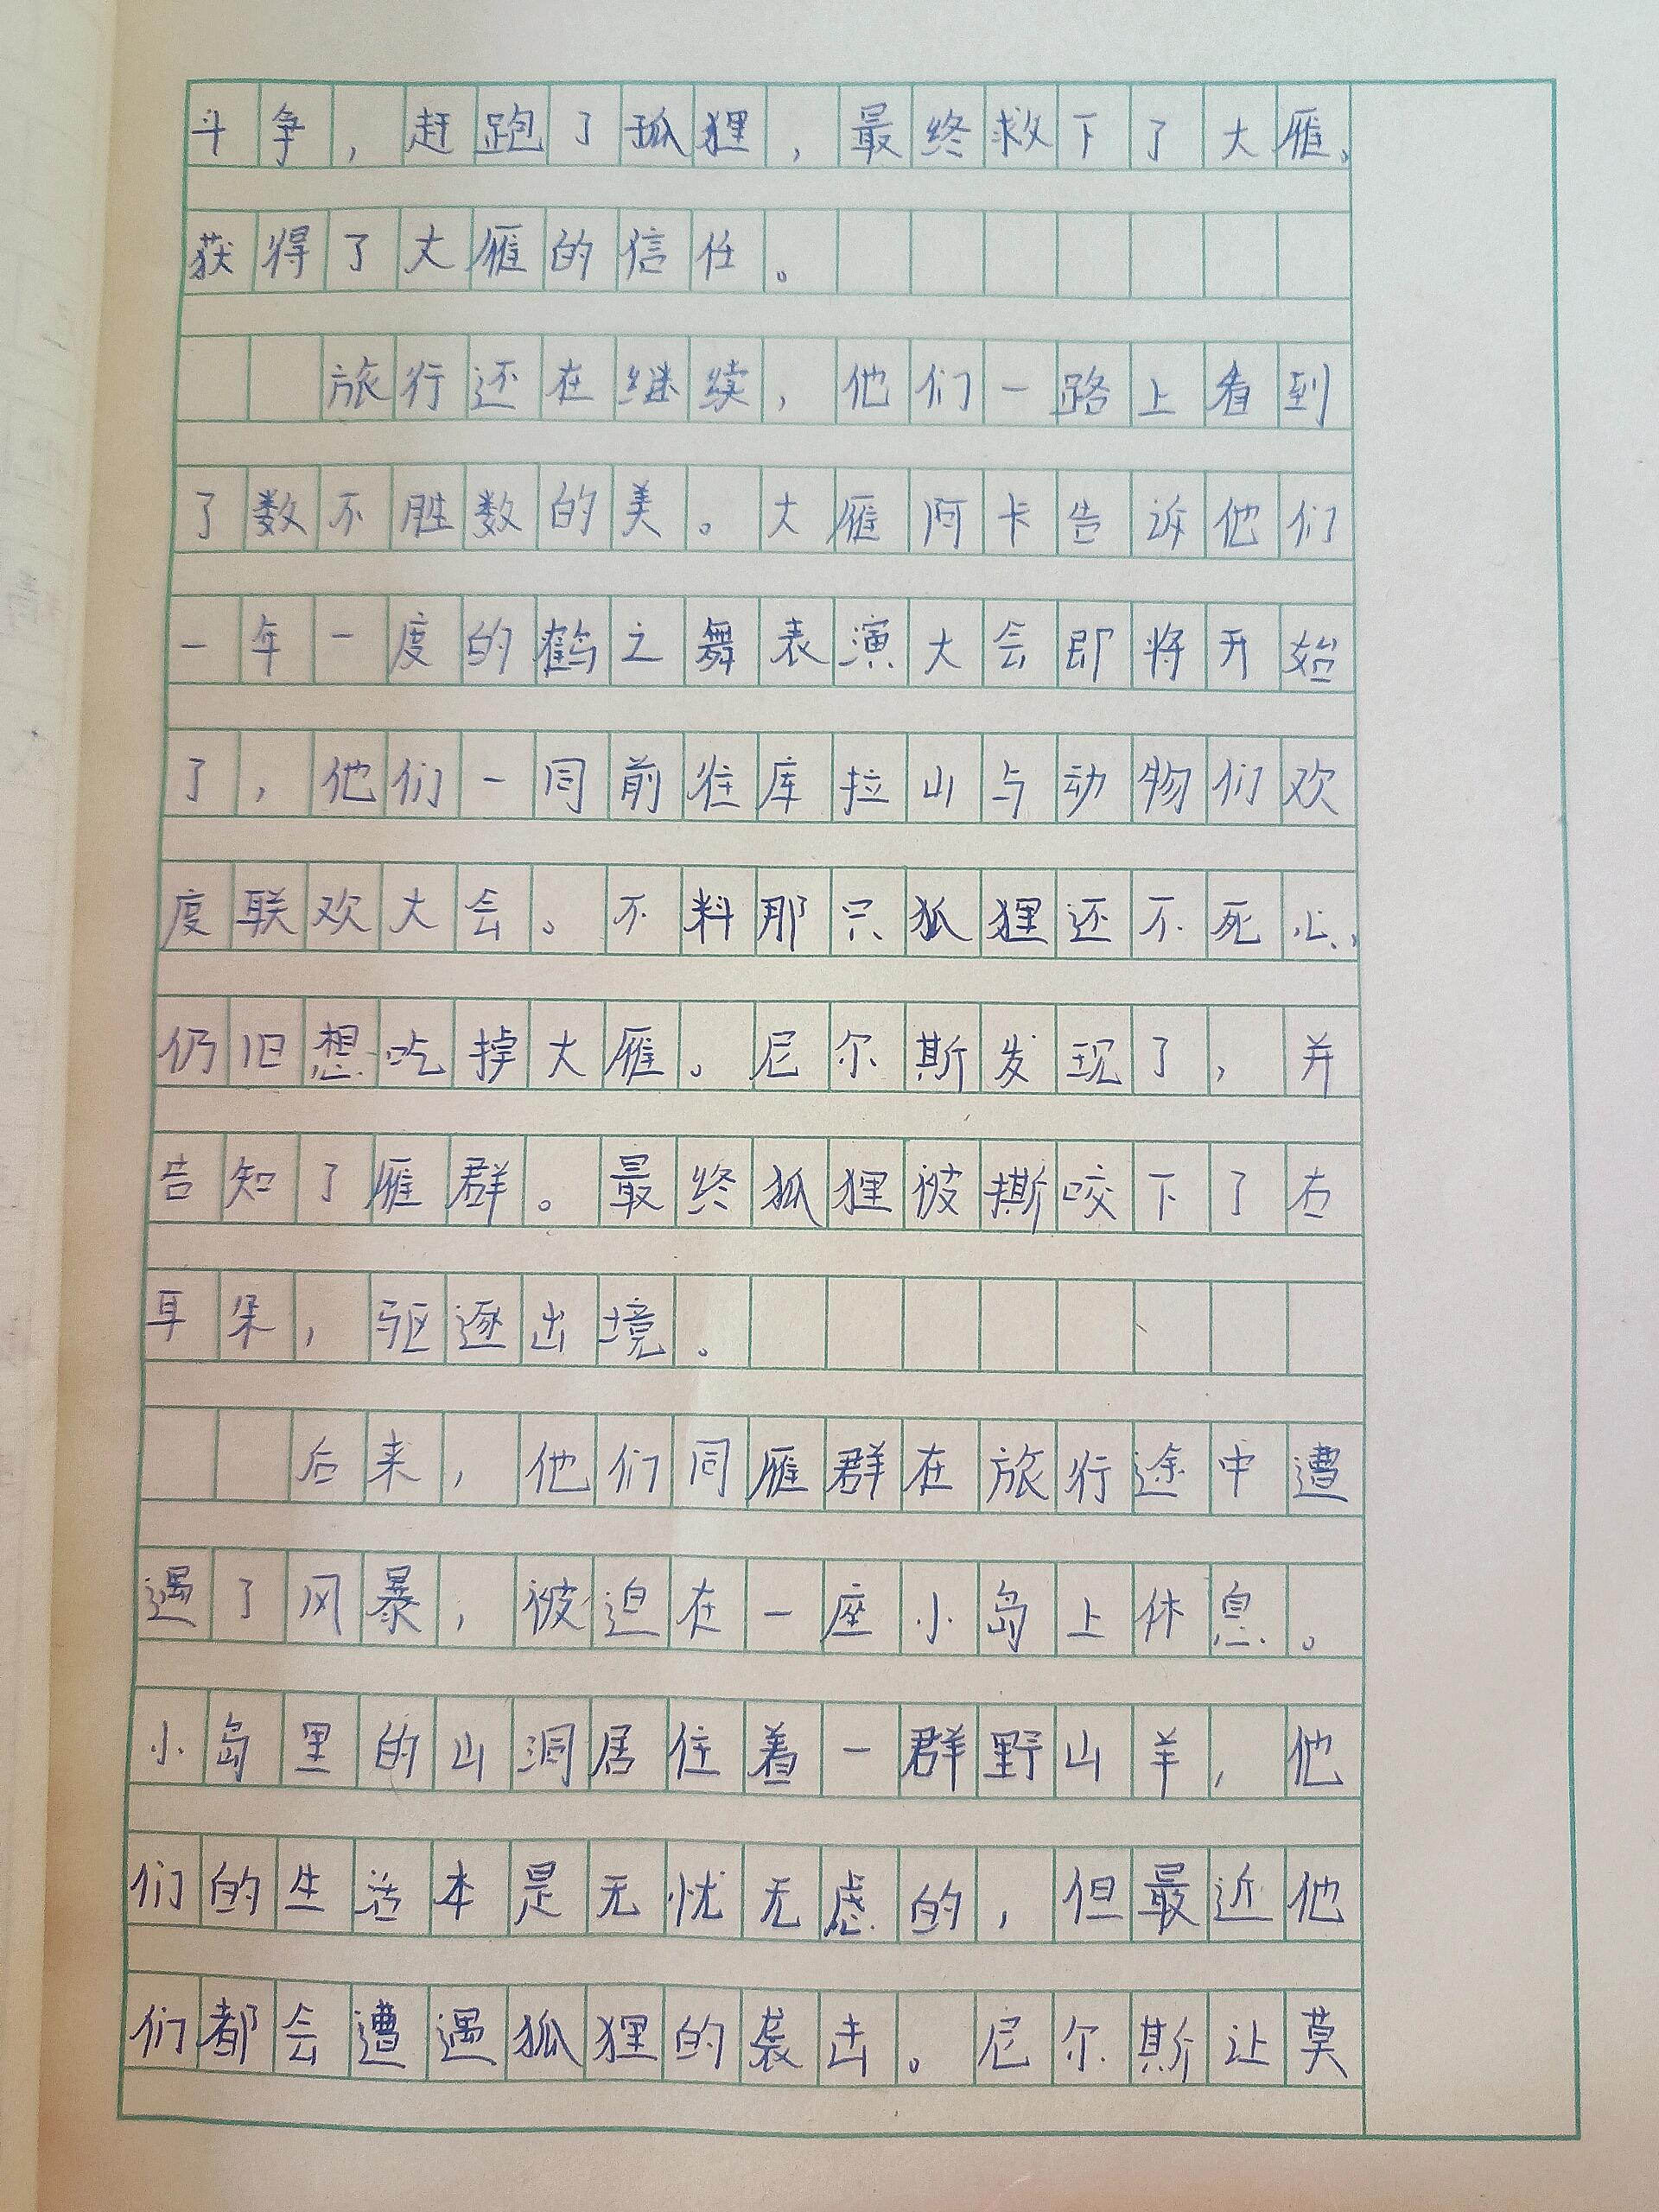 斗争，赶跑了狐狸，最终救下了大雁，
获得了大雁的信任。
旅行还在继续，他们一路上看到
了数不胜数的美。大雁阿卡告诉他们
一年一度的鹤之舞表演大会即将开始
了，他们一同前往库拉山与动物们欢
度联欢大会。不料那只狐狸还不死心，
仍旧想吃掉大雁。尼尔斯发现了，并
告知了雁群。最终狐狸被撕咬下了右
耳朵，驱逐出境。
后来，他们同雁群在旅行途中遭
遇了风暴，被迫在一座小岛上休息。
小岛里的山洞居住着一群野山羊，他
们的生活本是无忧无虑的，但最近他
们都会遭遇狐狸的袭击。尼尔斯让莫